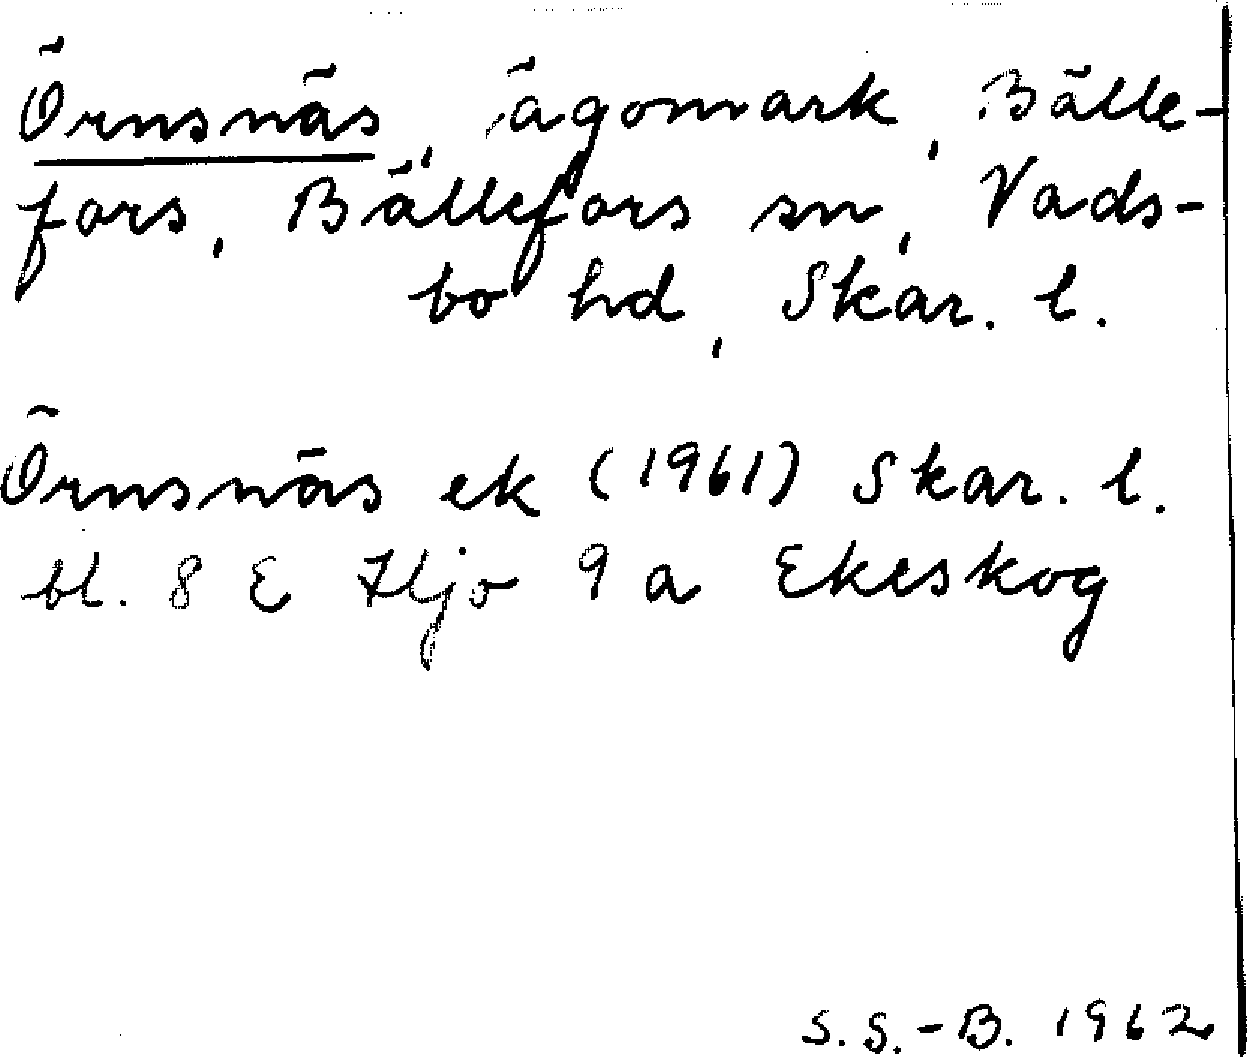 Örnsnäs, ägomark, Bälle-
fors, Bällefors sn, Vads-
bo hd, Skar. l.
Örnsnäs ek (1961) Skar. l.
bl. 8 E Hjo 9 a Ekeskog
S. S.-B. 1962